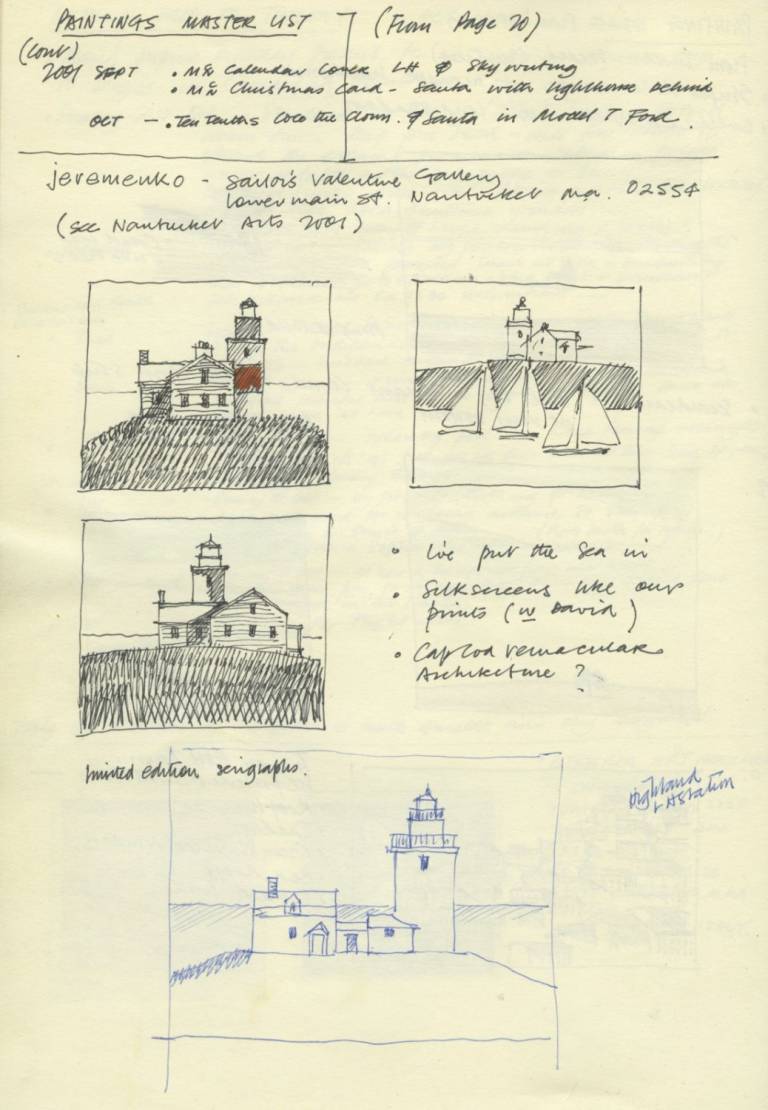 PAINTINGS MASTER LIST
(From Page 20)
(CONT)
2001 SEPT • Calendar Cover LH & Skywriting
• Christmas Card - Santa with lighthouse behind
OCT - • Ten Tenths Coco the Clown. & Santa in Model T Ford.
jeremenko - Sailor's Valentine Gallery
Lower main St. Nantucket Ma. 02554
(see Nantucket Arts 2001)
• I've put the Sea in
• Silkscreens like our
prints (w David)
• Cape Cod vernacular
Architecture ?
limited edition serigraphs.
Highland
LH Station